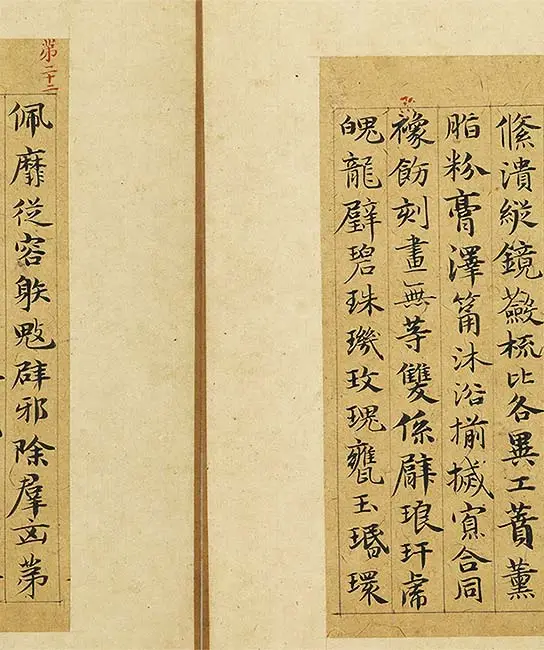 絛潰縱鏡蘞梳比各異工蕡薰
脂粉膏澤筩沐浴揃搣寡合同
襐飭刻畫無等雙係臂琅玕虎
魄龍璧碧珠璣玫瑰甕玉環
第二十二
佩靡從容射魃辟邪除羣凶第